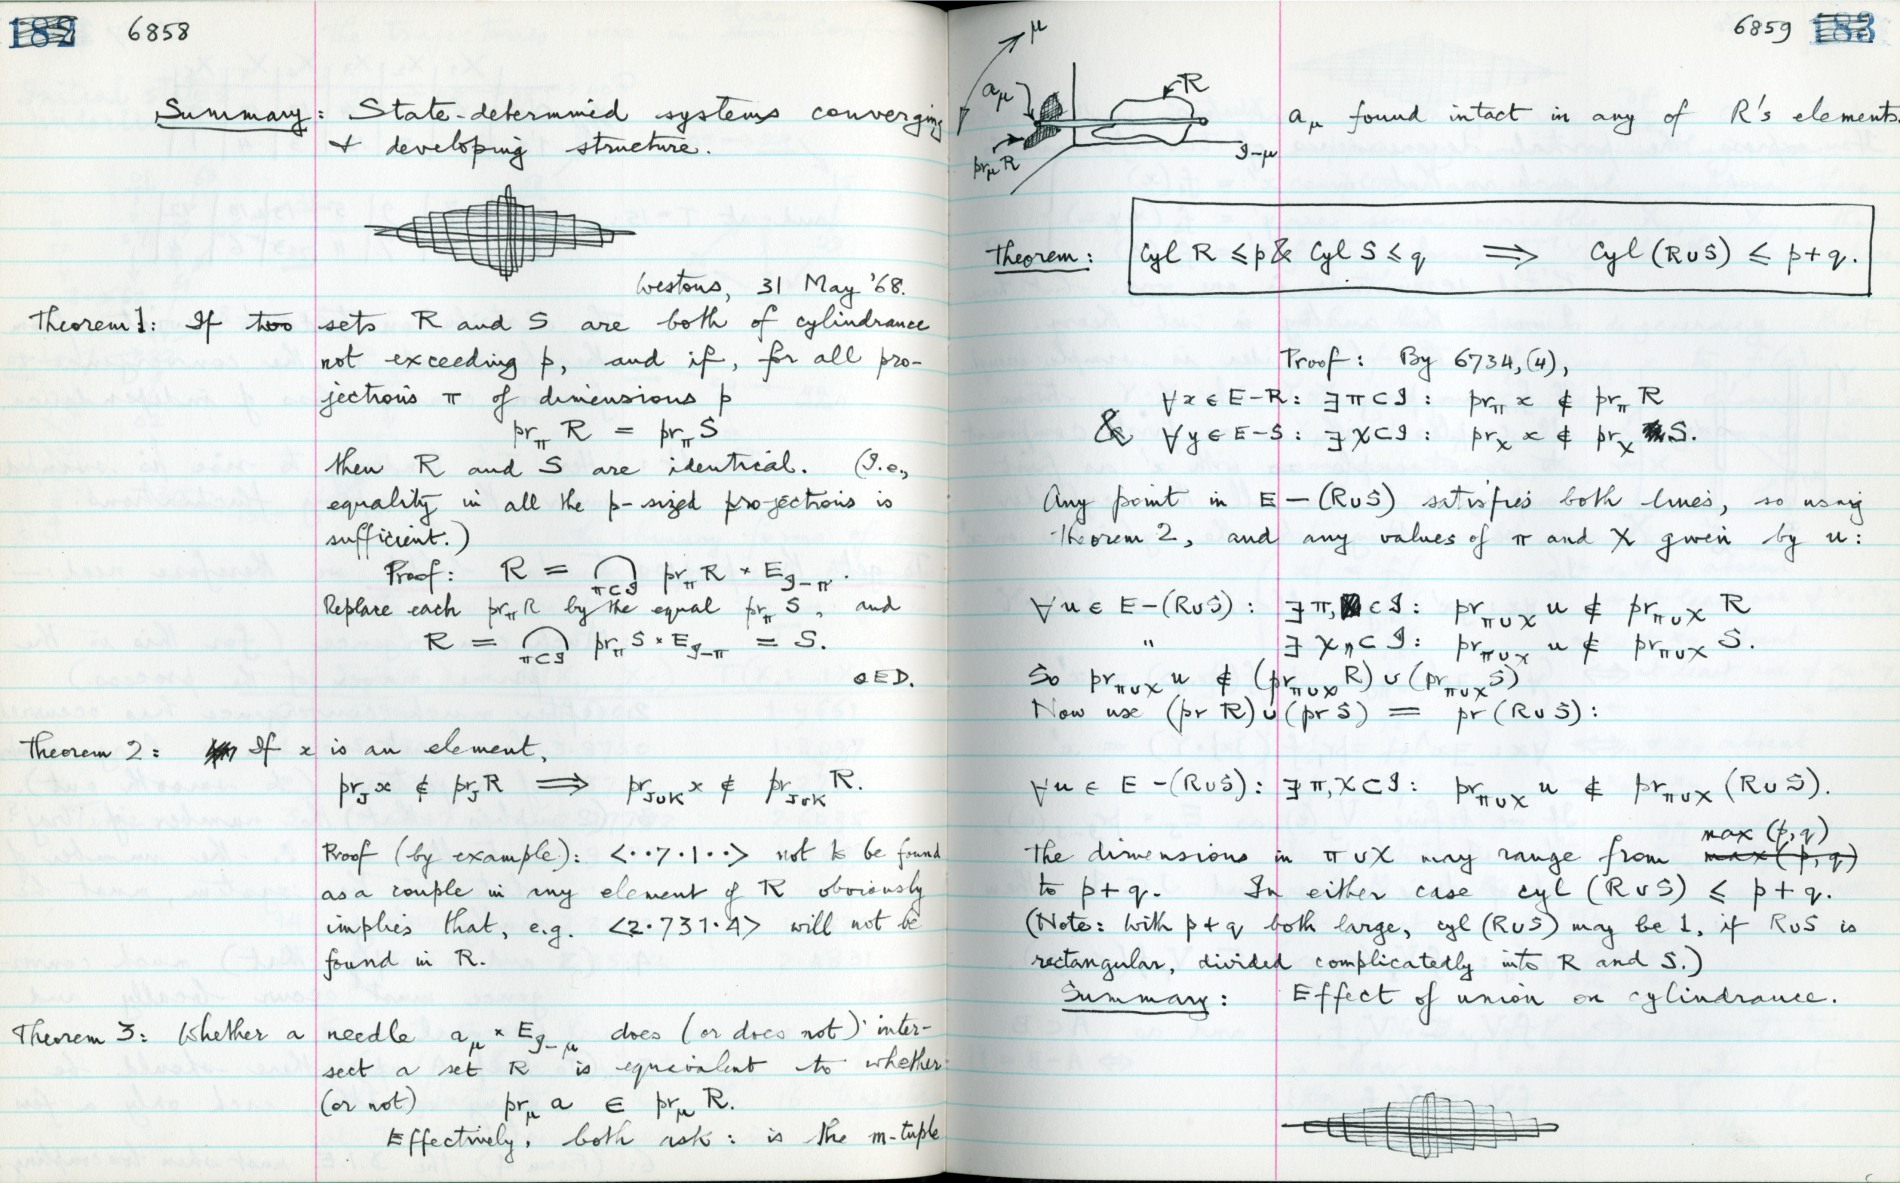 182 6858
Summary: State-determined systems converging
& developing structure.
Westons, 31 May '68.
Theorem 1: If two sets R and S are both of cylindrance
not exceeding p, and if, for all pro-
jections π of dimensions p
pr_π R = pr_π S
then R and S are identical. (I.e.,
equality in all the p-sized projections is
sufficient.)
Proof: R = ⋂_{π⊂I} pr_π R × E_{I-π}.
Replace each pr_π R by the equal pr_π S, and
R = ⋂_{π⊂I} pr_π S × E_{I-π} = S.
QED.
Theorem 2: If x is an element,
pr_J x ∉ pr_J R ⟹ pr_{J∪K} x ∉ pr_{J∪K} R.
Proof (by example): <··7·1··> not to be found
as a couple in any element of R obviously
implies that, e.g. <2·731·4> will not be
found in R.
Theorem 3: Whether a needle a_μ × E_{I-μ} does (or does not) inter-
sect a set R is equivalent to whether
(or not) pr_μ a ∈ pr_μ R.
Effectively, both ask: is the m-tuple
6859 183
μ
a_μ
R
pr_μ R
I-μ
a_μ found intact in any of R's elements.
Theorem: Cyl R ≤ p & Cyl S ≤ q ⟹ Cyl (R∪S) ≤ p+q.
Proof: By 6734,(4),
∀x ∈ E-R: ∃π⊂I: pr_π x ∉ pr_π R
& ∀y ∈ E-S: ∃χ⊂I: pr_χ x ∉ pr_χ S.
Any point in E-(R∪S) satisfies both lines, so using
Theorem 2, and any values of π and χ given by u:
∀u ∈ E-(R∪S): ∃π, ⊂I: pr_{π∪χ} u ∉ pr_{π∪χ} R
" ∃χ, ⊂I: pr_{π∪χ} u ∉ pr_{π∪χ} S.
So pr_{π∪χ} u ∉ (pr_{π∪χ} R) ∪ (pr_{π∪χ} S)
Now use (pr R) ∪ (pr S) = pr (R∪S):
∀u ∈ E-(R∪S): ∃π,χ⊂I: pr_{π∪χ} u ∉ pr_{π∪χ} (R∪S).
max (p,q)
The dimensions in π∪χ may range from max (p,q)
to p+q. In either case cyl (R∪S) ≤ p+q.
(Note: With p+q both large, cyl (R∪S) may be 1, if R∪S is
rectangular, divided complicatedly into R and S.)
Summary: Effect of union on cylindrance.